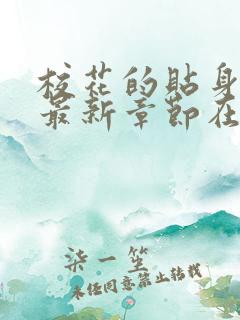 校花的贴身
最新章节在
柒一笙
未经同意禁止转载